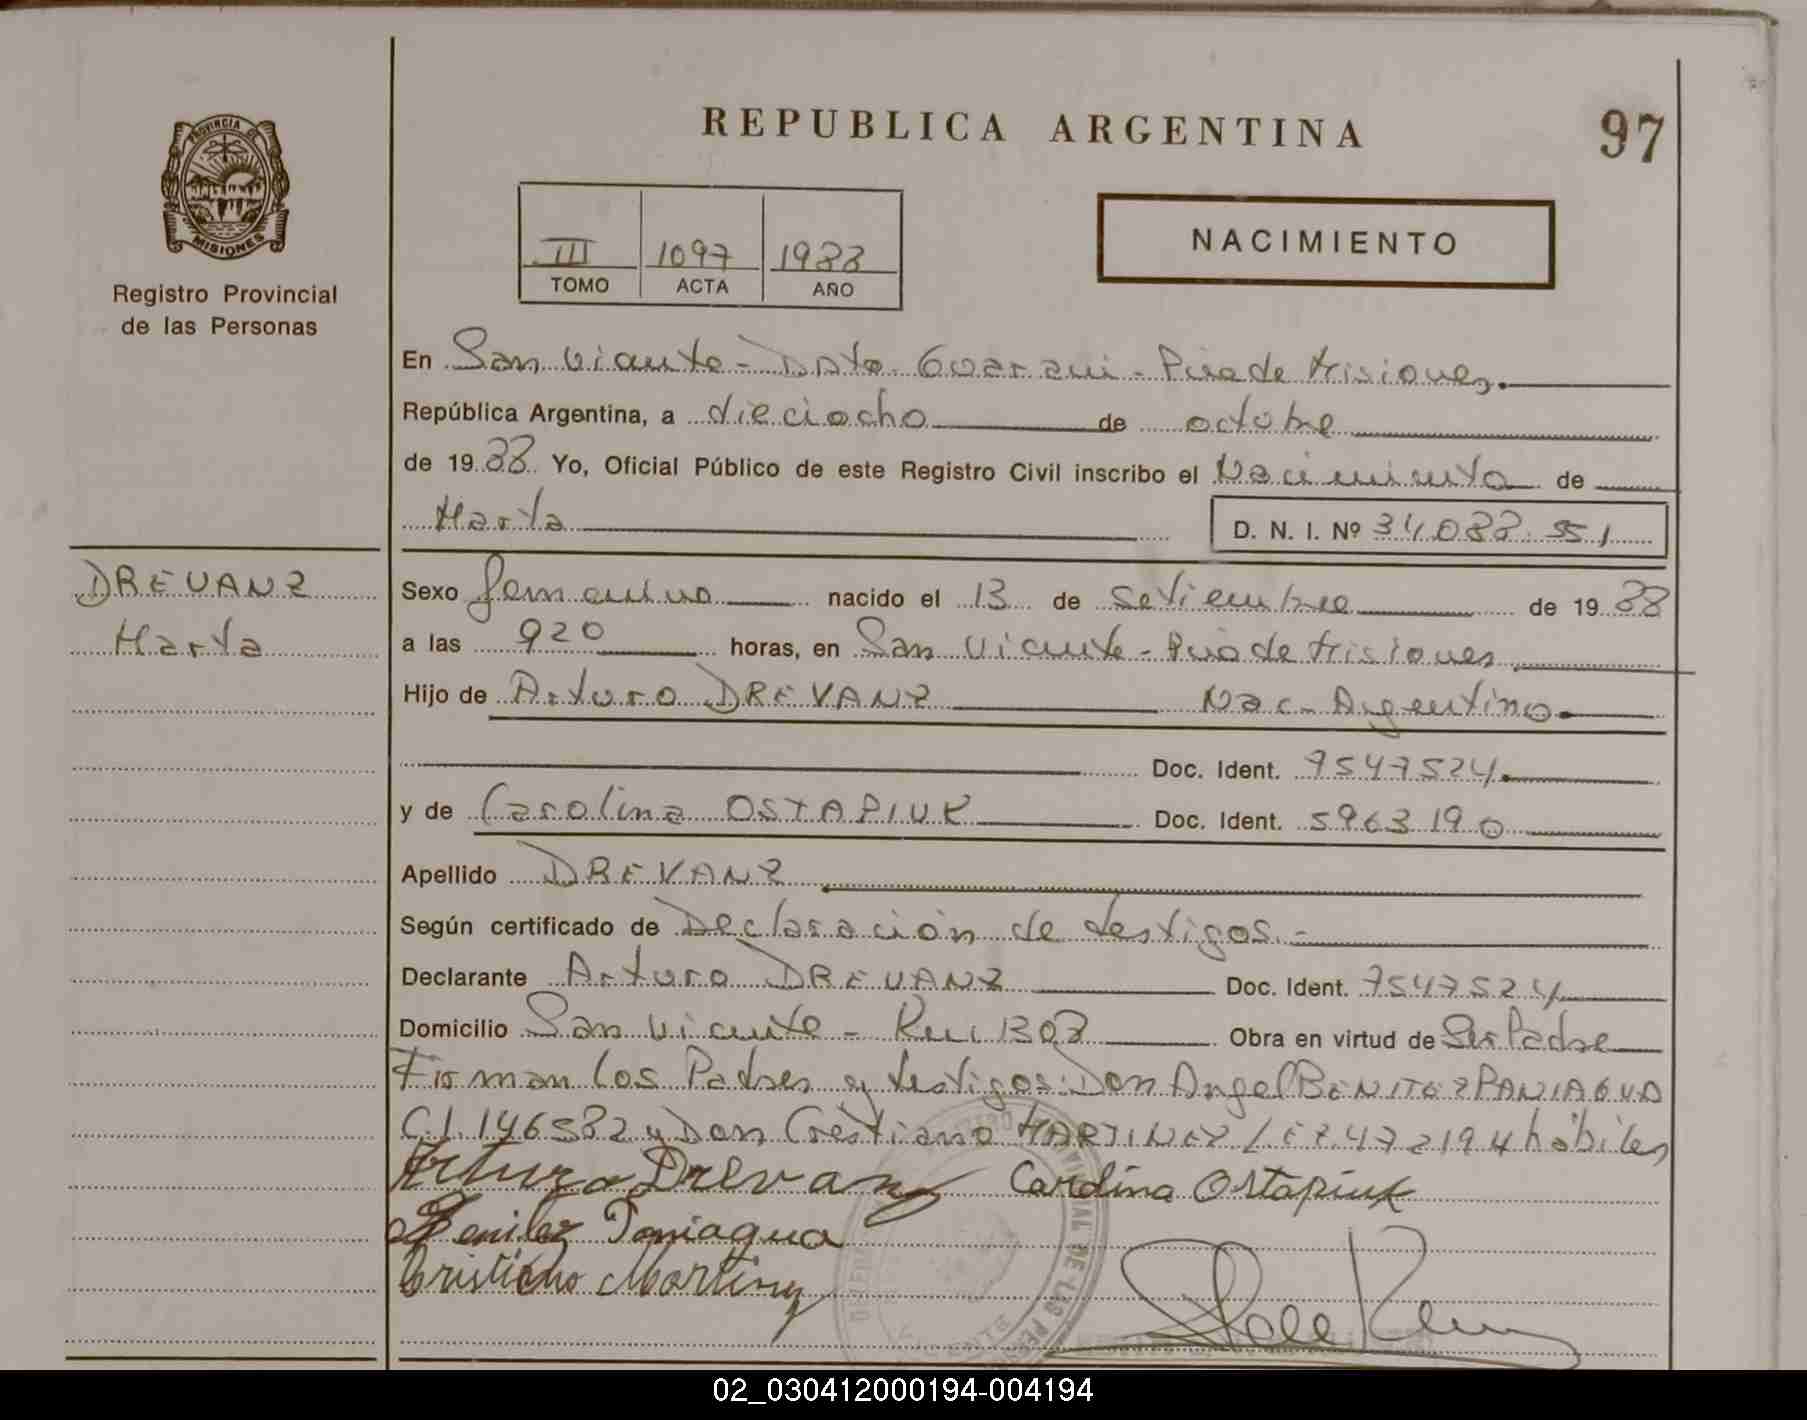 PROVINCIA DE
MISIONES
Registro Provincial
de las Personas
REPUBLICA ARGENTINA
97
III 1097 1988
TOMO ACTA AÑO
NACIMIENTO
En San Vicente - Dpto. Guarani - Pcia de Misiones.
República Argentina, a dieciocho de octubre
de 1988 Yo, Oficial Público de este Registro Civil inscribo el Nacimiento de
Marta D. N. I. Nº 34.088.551
DREVANZ
Marta
Sexo femenino nacido el 13 de setiembre de 1988
a las 920 horas, en San Vicente - Pcia de Misiones
Hijo de Arturo DREVANZ Nac. Argentino
Doc. Ident. 7547524
y de Carolina OSTAPIUK Doc. Ident. 5963190
Apellido DREVANZ
Según certificado de Declaración de testigos.-
Declarante Arturo DREVANZ Doc. Ident. 7547524
Domicilio San Vicente - Km 1308 Obra en virtud de Ser Padre
Firman los Padres y testigos: Don Angel BENITEZ PANIAGUA
C.I. 146582 y Don Cristiano MARTINEZ L.E 7.472194 hábiles
Arturo Drevanz Carolina Ostapiuk
Benitez Paniagua
Cristiano Martinez
02_030412000194-004194